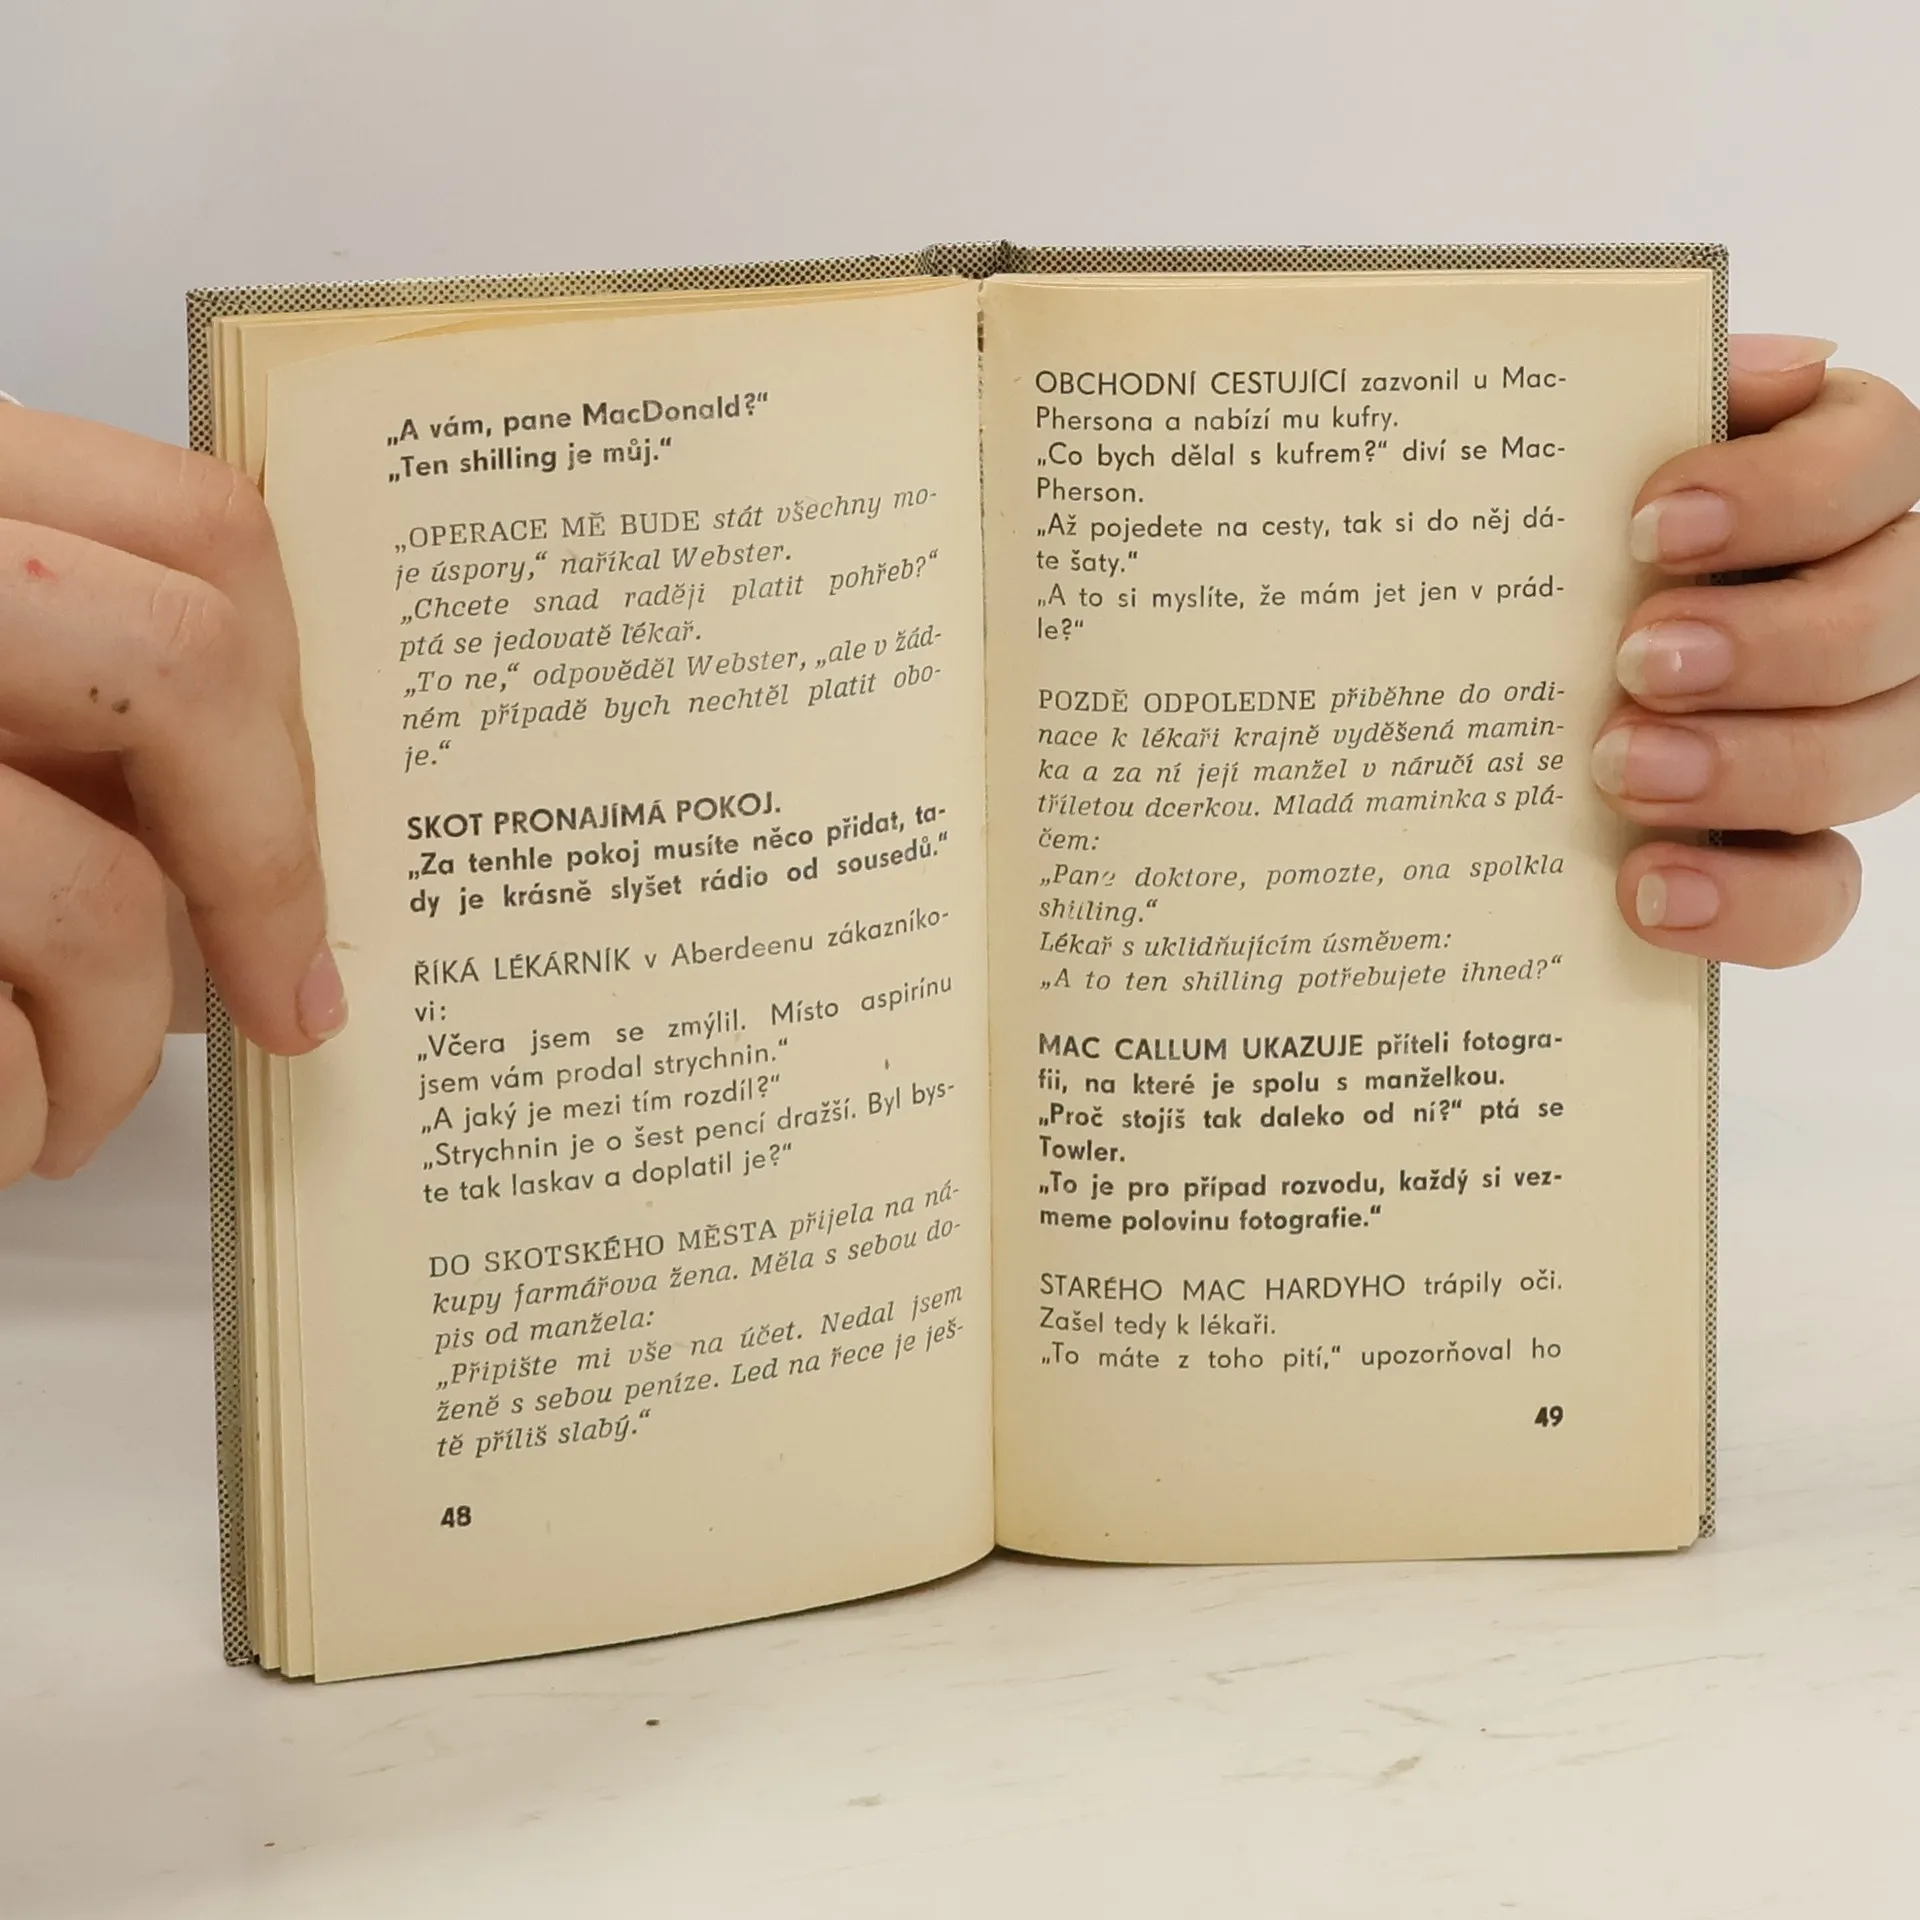 „A vám, pane MacDonald?“
„Ten shilling je můj.“
„OPERACE MĚ BUDE stát všechny mo-
je úspory,“ naříkal Webster.
„Chcete snad raději platit pohřeb?“
ptá se jedovatě lékař.
„To ne,“ odpověděl Webster, „ale v žád-
ném případě bych nechtěl platit obo-
je.“
SKOT PRONAJÍMÁ POKOJ.
„Za tenhle pokoj musíte něco přidat, ta-
dy je krásně slyšet rádio od sousedů.“
ŘÍKÁ LÉKÁRNÍK v Aberdeenu zákazníko-
vi:
„Včera jsem se zmýlil. Místo aspirínu
jsem vám prodal strychnin.“
„A jaký je mezi tím rozdíl?“
„Strychnin je o šest pencí dražší. Byl bys-
te tak laskav a doplatil je?“
DO SKOTSKÉHO MĚSTA přijela na ná-
kupy farmářova žena. Měla s sebou do-
pis od manžela:
„Připište mi vše na účet. Nedal jsem
ženě s sebou peníze. Led na řece je ješ-
tě příliš slabý.“
48
OBCHODNÍ CESTUJÍCÍ zazvonil u Mac-
Phersona a nabízí mu kufry.
„Co bych dělal s kufrem?“ diví se Mac-
Pherson.
„Až pojedete na cesty, tak si do něj dá-
te šaty.“
„A to si myslíte, že mám jet jen v prád-
le?“
POZDĚ ODPOLEDNE přiběhne do ordi-
nace k lékaři krajně vyděšená mamin-
ka a za ní její manžel v náručí asi se
tříletou dcerkou. Mladá maminka s plá-
čem:
„Pane doktore, pomozte, ona spolkla
shilling.“
Lékař s uklidňujícím úsměvem:
„A to ten shilling potřebujete ihned?“
MAC CALLUM UKAZUJE příteli fotogra-
fii, na které je spolu s manželkou.
„Proč stojíš tak daleko od ní?“ ptá se
Towler.
„To je pro případ rozvodu, každý si vez-
meme polovinu fotografie.“
STARÉHO MAC HARDYHO trápily oči.
Zašel tedy k lékaři.
„To máte z toho pití,“ upozorňoval ho
49